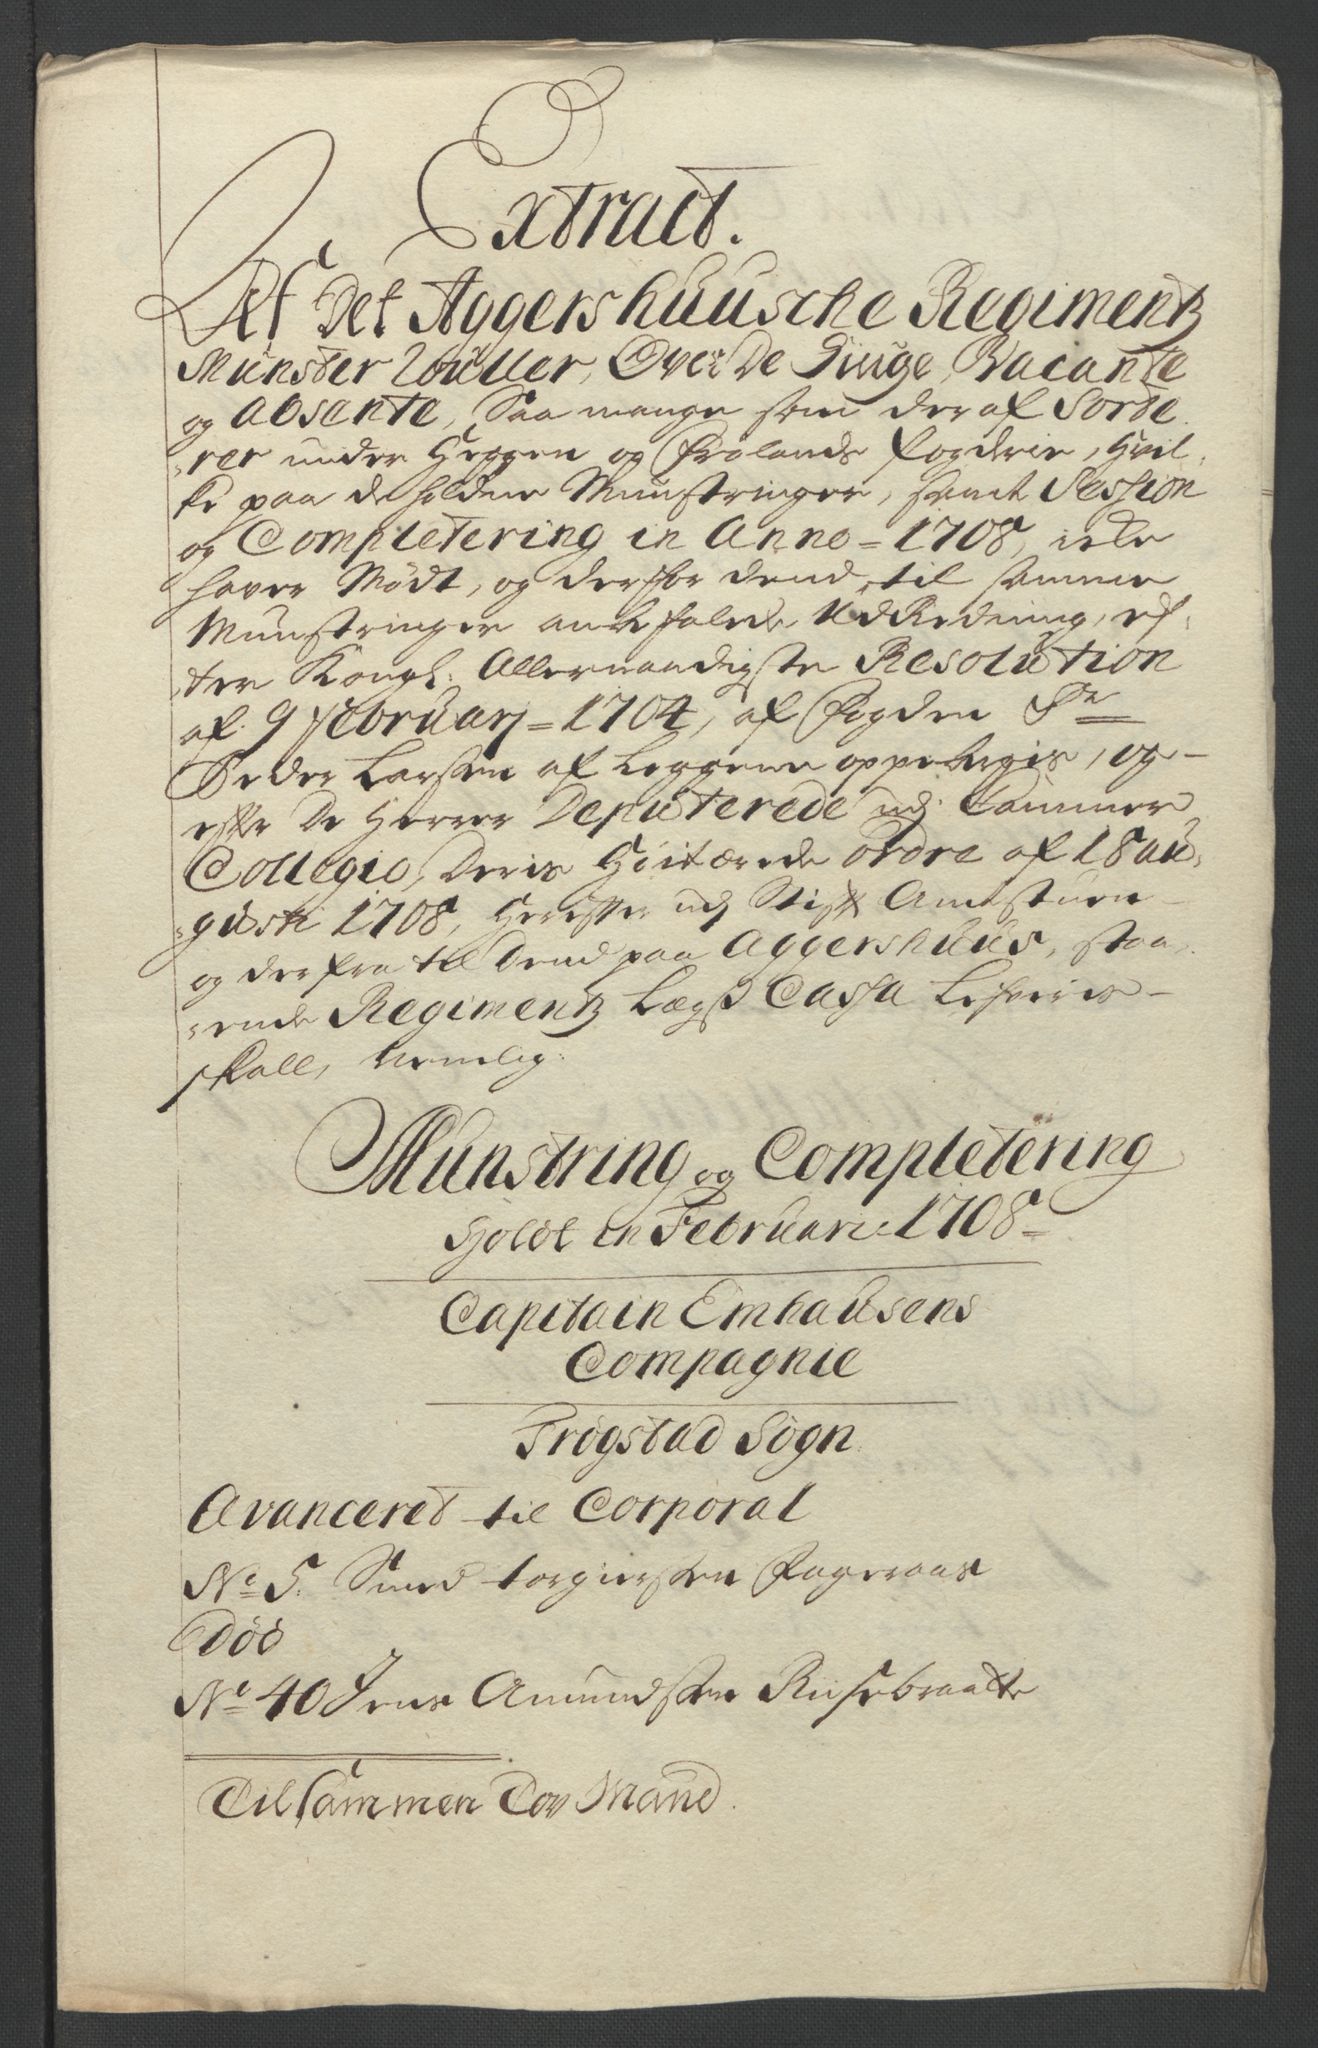 Extract.
Af Det Aggershuusche Regimentz
Munster Roller, Over De Siuge, Vacante
og Absente, Saa mange som der af Sorte,
,,rer under Heggen og Frølands fogderie, Hvil,,
ke paa de holdne Munstringer, samt Session
og Completering in Anno = 1708, icke
hafver Mødt, og derfor dend til samme
Munstringer anbefalede Udredning, ef,,
,,ter Kongl: Allernaadigste Resolution
af 9 februarj = 1704, af Fogden Sr
Peder Larsen af Leggene oppebergis, og –
efter De Herrer Deputerede udj Cammer
Collegio, Deris Høitærede ordre af 18 au,,
,,gusti 1708, Herefter udj Stift Amtstuen –
og derfra til Dend paa Aggershuus, staa,,
,,ende Regimentz Lægs Cassa Lefveris –
skall, Nemlig:
Munstring og Completering
Holdt in Februari 1708 =
Capitain Emhausens
Compagnie
Trøgstad Sogn
Avanceret til Corporal
No 5. Svend torgiersen Fageraas
Døø
No 40 Jens Amundsen Risebraatte
Tilsammen Tov Mand.